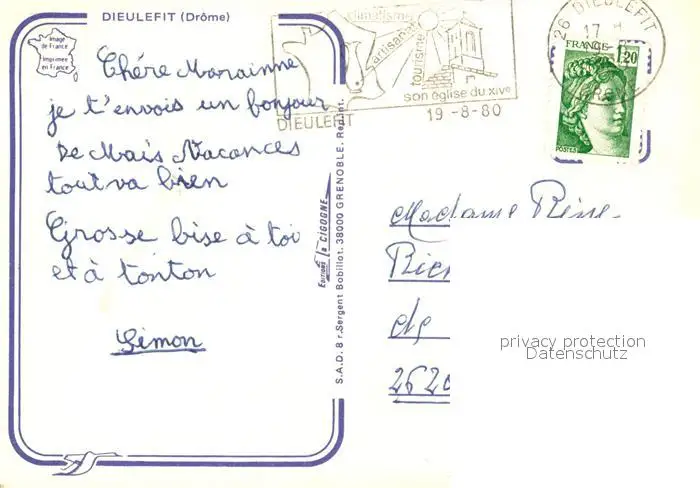 DIEULEFIT (Drôme)
Image
de France
Imprimée
en France
Chére Marainne
je t'envois un bonjour
De Mais Vacances
tout va bien
Grosse bise à toi
et à tonton
Simon
climatisme
artisanat
tourisme
son église du XIVe
DIEULEFIT
19 -8- 80
26 DIEULEFIT
17 H
FRANCE
1,20
POSTES
Editions la CIGOGNE
S.A.D. 8 r. Sergent Bobillot. 38000 GRENOBLE.
Madame Reine
de
2620
privacy protection
Datenschutz